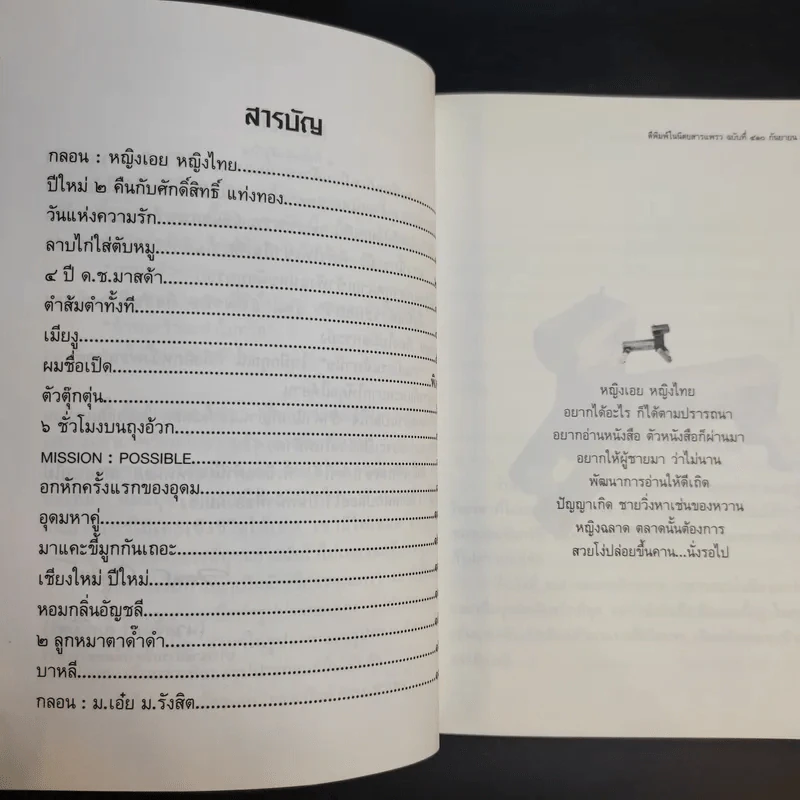 สารบัญ
กลอน : หญิงเอย หญิงไทย
ปีใหม่ ๒ คืนกับศักดิ์สิทธิ์ แท่งทอง
วันแห่งความรัก
ลาบไก่ใส่ตับหมู
๔ ปี ด.ช.มาสด้า
ตำส้มตำทั้งที
เมียงู
ผมชื่อเป็ด
ตัวตุ๊กตุ่น
๖ ชั่วโมงบนถุงอ้วก
MISSION : POSSIBLE
อกหักครั้งแรกของอุดม
อุดมหาคู่
มาแคะขี้มูกกันเถอะ
เชียงใหม่ ปีใหม่
หอมกลิ่นอัญชลี
๒ ลูกหมาตาด๊ำดำ
บาหลี
กลอน : ม.เอ๋ย ม.รังสิต
ตีพิมพ์ในนิตยสารแพรว ฉบับที่ ๔๑๐ กันยายน
หญิงเอย หญิงไทย
อยากได้อะไร ก็ได้ตามปรารถนา
อยากอ่านหนังสือ ตัวหนังสือก็ผ่านมา
อยากให้ผู้ชายมา ว่าไม่นาน
พัฒนาการอ่านให้ดีเถิด
ปัญญาเกิด ชายวิ่งหาเช่นของหวาน
หญิงฉลาด ตลาดนั้นต้องการ
สวยโง่ปล่อยขึ้นคาน...นั่งรอไป